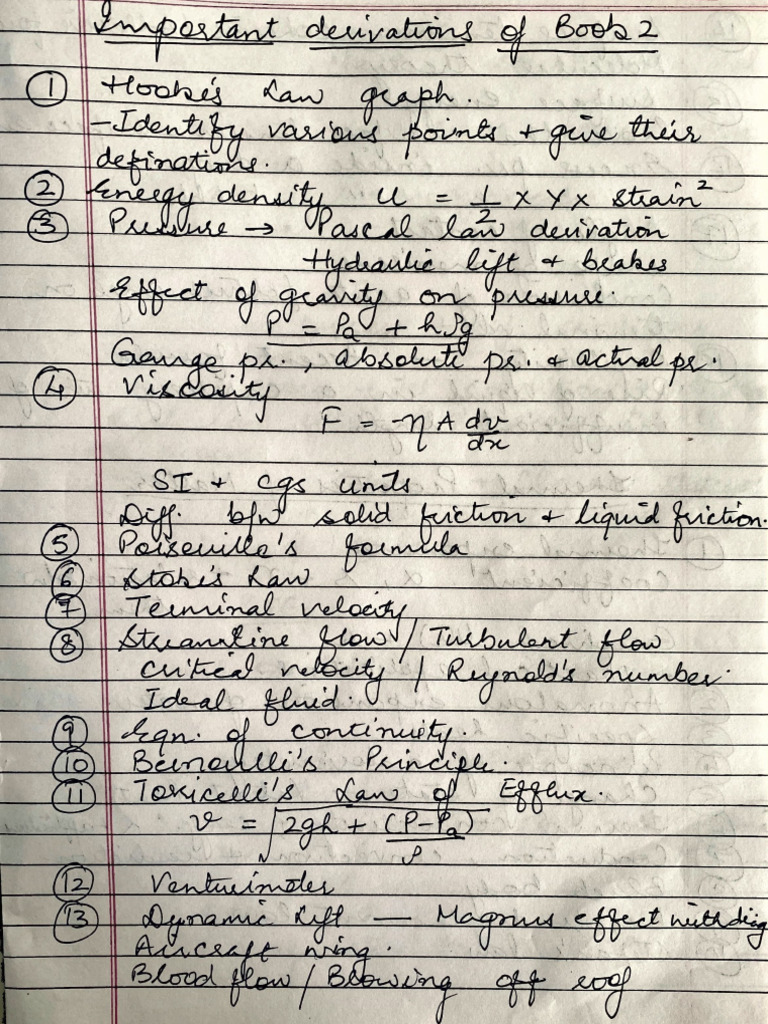 Important derivations of Book 2
① Hooke's Law graph.
- Identify various points + give their
definations.
② Energy density u = 1/2 x Y x strain²
③ Pressure → Pascal law derivation
Hydraulic lift & brakes
Effect of gravity on pressure.
P = Pa + hρg
Gauge pr., absolute pr. & actual pr.
④ Viscosity
F = -η A dv/dx
SI + cgs units
Diff. b/w solid friction & liquid friction.
⑤ Poiseuille's formula
⑥ Stoke's Law
⑦ Terminal velocity
⑧ Streamline flow / Turbulent flow
critical velocity / Reynold's number.
Ideal fluid.
⑨ Eqn. of continuity.
⑩ Bernoulli's Principle.
⑪ Torricelli's Law of Efflux.
v = √(2gh + (P-Pa)/ρ)
⑫ Venturimeter
⑬ Dynamic Lift — Magnus effect with diag
Aircraft wing.
Blood flow / Blowing off roof